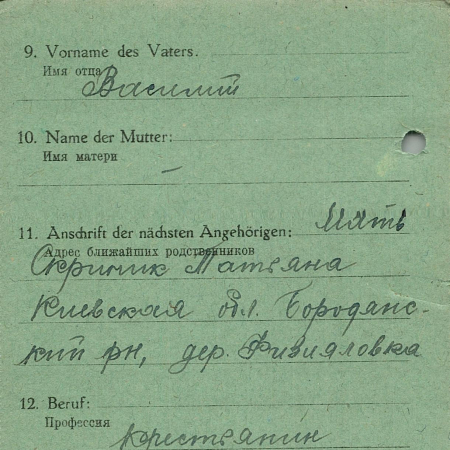 9. Vorname des Vaters.
Имя отца
Василий
10. Name der Mutter:
Имя матери
–
11. Anschrift der nächsten Angehörigen: Мать
Адрес ближайших родственников
Скрипник Татьяна
Киевская обл. Бородянс-
кий рн, дер. Физияловка
12. Beruf:
Профессия
крестьянин